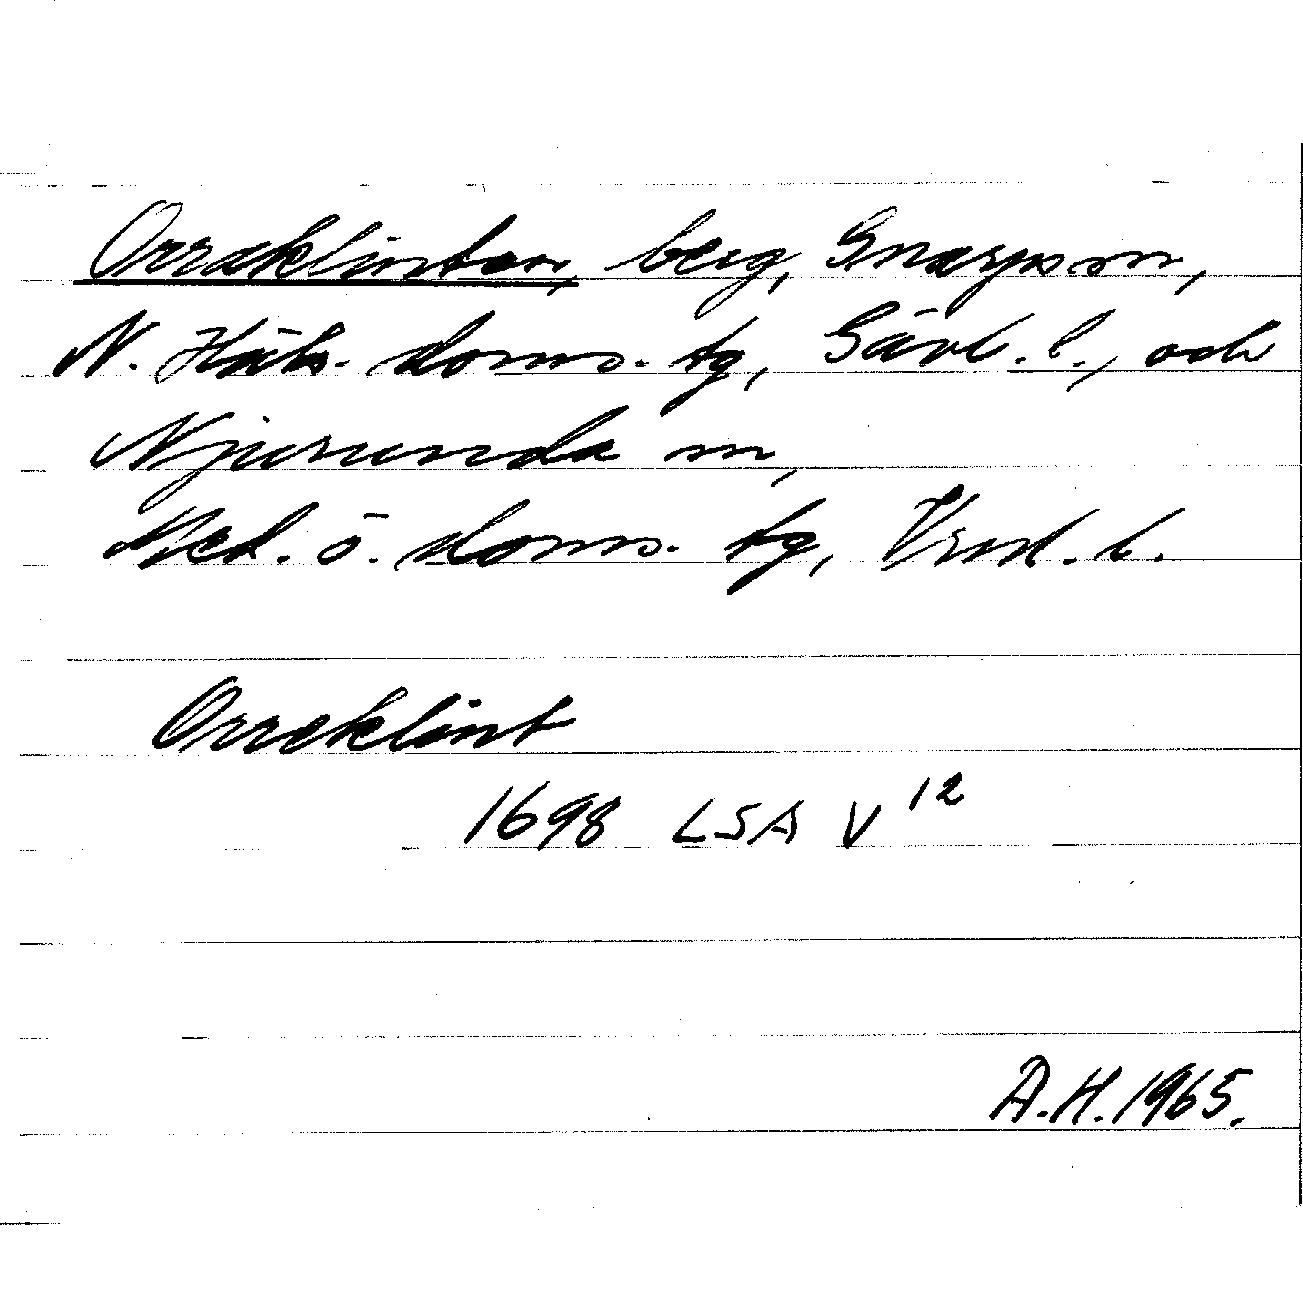 Orraklinten, berg, Gnarps sn,
N. Häls. doms. tg, Gävl. l., och
Njurunda sn,
Med. ö. doms. tg, Vnrl. l.
Orreklint
1698 LSA V 12
A.H. 1965.